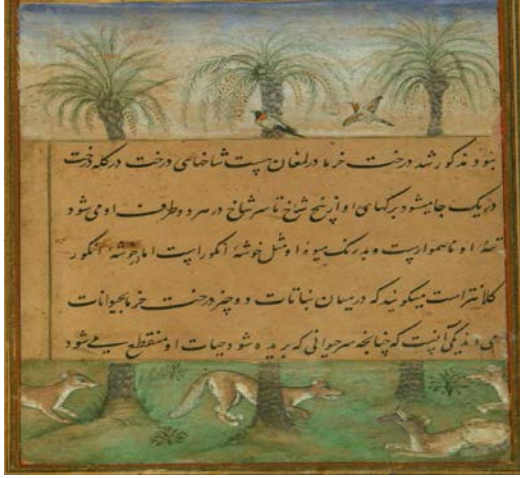 بنود مذکور شد درخت خرما در لمغان هست شاخهای درخت در کله درخت
در یک جا میشود برگهای او از بیخ شاخ تا سر شاخ در هر دو طرف او می شود
تنهٔ او ناهموارست و بدرنک میوهٔ او مثل خوشهٔ انکور است اما خوشهٔ انکور
کلانتر است میکویند که در میان نباتات دو چیز درخت خرما بحیوانات
می ماند یکی آنست که چنانچه سر حیوانی که بریده شود حیات او منقطع می شود